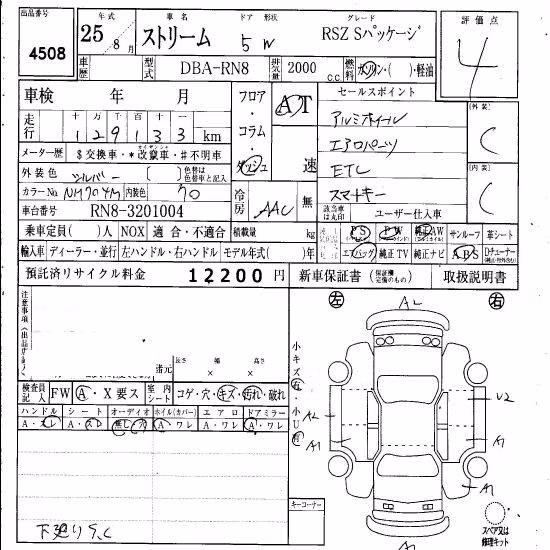 出品番号 年式 車名 ドア 形状 グレード 評価点
4508 25 8月 ストリーム 5 W RSZ Sパッケージ 4
車歴 型式 DBA-RN8 排気量 2000 C.C 燃料 ガソリン・( )・軽油
車検 年 月 フロア・コラム・ダッシュ AT 速 セールスポイント
走行 十万 万 千 百 十 一
1 2 9 1 3 3 km
アルミホイール
エアロパーツ
ETC
スマートキー
[外装] C
[内装] C
メーター歴 $交換車・*改竄車・#不明車
外装色 シルバー ( ) 色替は色替車と記入
カラーNo NH704M 内装色 70
冷房 AAC 無
該当車は丸印 ユーザー仕入車
車台番号 RN8-3201004
乗車定員( )人 NOX 適合・不適合 積載量 kg
PS PW 純正AW サンルーフ 革シート
輸入車 ディーラー・並行 左ハンドル・右ハンドル モデル年式( )年
エアバッグ 純正TV 純正ナビ ABS Dチューナー
預託済リサイクル料金 12200円 新車保証書 (保証書 定備のもの) 取扱説明書
左 AL 右
注意事項
諸元 長さ × 幅 × 高さ
小キズ有・小U有
検査員記入 FW A・X要ス 室内シート コゲ・穴・キズ・汚れ・破れ
ハンドル シート オーディオ ホイル(カバー) エアロ ドアミラー
A・スレ A・スレ 無し・穴 A・ワレ A・ワレ A・ワレ
A2
A1
U2
A1
A1
下廻りS,C
キーコーナー
AL
スペア又は修理キット